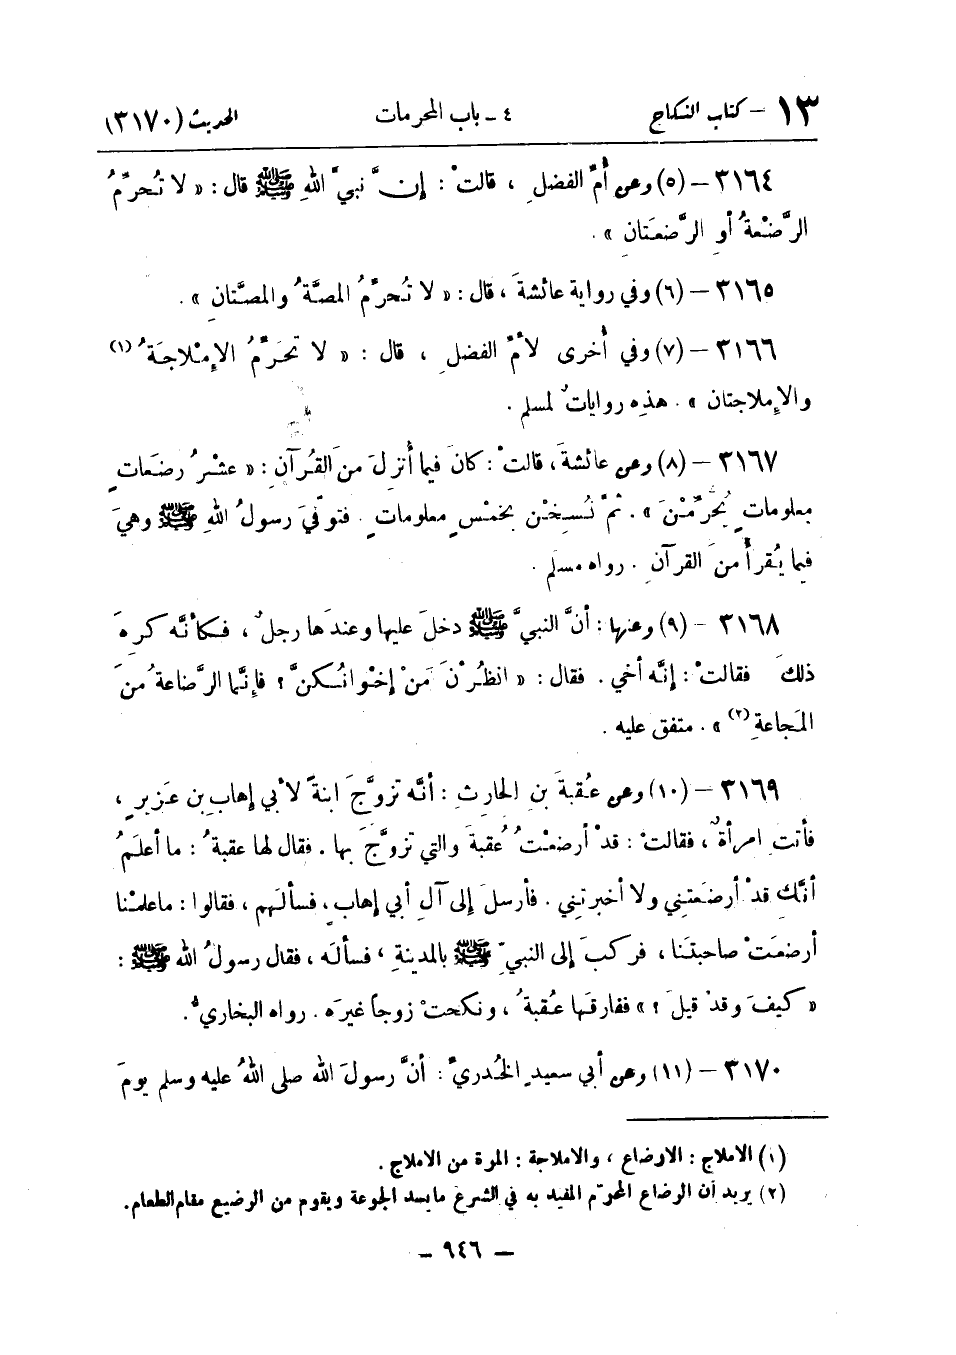 ١٣ – كتاب النكاح ٤ ـ باب المحرمات الحديث (٣١٧٠)
٣١٦٤ – (٥) وعن أُمِّ الفضلِ ، قالتْ : إِنَّ نبيَّ اللهِ ﷺ قال : « لا تُحرِّمُ
الرَّضْعةُ أوِ الرَّضعَتانِ » .
٣١٦٥ – (٦) وفي رواية عائشةَ ، قال : « لا تُحرِّمُ المصَّةُ والمصَّتانِ » .
٣١٦٦ – (٧) وفي أُخرى لأمِّ الفضلِ ، قال : « لا تحَرِّمُ الإمْلاجَةُ (١)
والإملاجتان » . هذهِ رواياتٌ لمسلم .
٣١٦٧ – (٨) وعن عائشةَ ، قالتْ : كانَ فيما أُنزِلَ منَ القُرآنِ : « عشْرُ رضَعاتٍ
معلوماتٍ يُحَرِّمْنَ » . ثمَّ نُسِخْنَ بخمْسٍ معلوماتٍ . فتوفِّيَ رسولُ اللهِ ﷺ وهيَ
فيما يُقرأُ منَ القرآنِ . رواه مسلم .
٣١٦٨ - (٩) وعنها : أنَّ النبيَّ ﷺ دخلَ عليها وعندَها رجلٌ ، فكأنَّه كرِهَ
ذلكَ فقالتْ : إنَّه أخي . فقال : « انظُرْنَ مَنْ إخْوانُكنَّ ؟ فإنَّما الرَّضاعةُ منَ
المَجاعةِ (٢) » . متفق عليه .
٣١٦٩ – (١٠) وعن عُقبةَ بنِ الحارِثِ : أنَّه تزوَّجَ ابنةً لأبي إهابِ بن عَزيزٍ ،
فأتتِ امرأةٌ ، فقالتْ : قدْ أرضعْتُ عُقبةَ والتي تزوَّجَ بها . فقال لها عقبةُ : ما أعلَمُ
أنَّكِ قدْ أرضَعتِني ولا أخبرتِني . فأرسلَ إلى آلِ أبي إهابٍ ، فسألَهم ، فقالوا : ماعلمْنا
أرضعَتْ صاحبتَنا ، فركبَ إلى النبيِّ ﷺ بالمدينةِ ، فسألَه ، فقال رسولُ الله ﷺ :
« كيفَ وقدْ قيلَ ؟ » ففارقَها عُقبةُ ، ونكحتْ زوجاً غيرَه . رواه البخاريُّ .
٣١٧٠ – (١١) وعن أبي سعيدٍ الخُدريِّ : أنَّ رسولَ الله صلى اللهُ عليه وسلم يومَ
(١) الاملاج : الارضاع ، والاملاجة : المرة من الاملاج .
(٢) يريد أن الرضاع المحرّم المفيد به في الشرع مايسد الجوعة ويقوم من الرضيع مقام الطعام .
– ٩٤٦ –